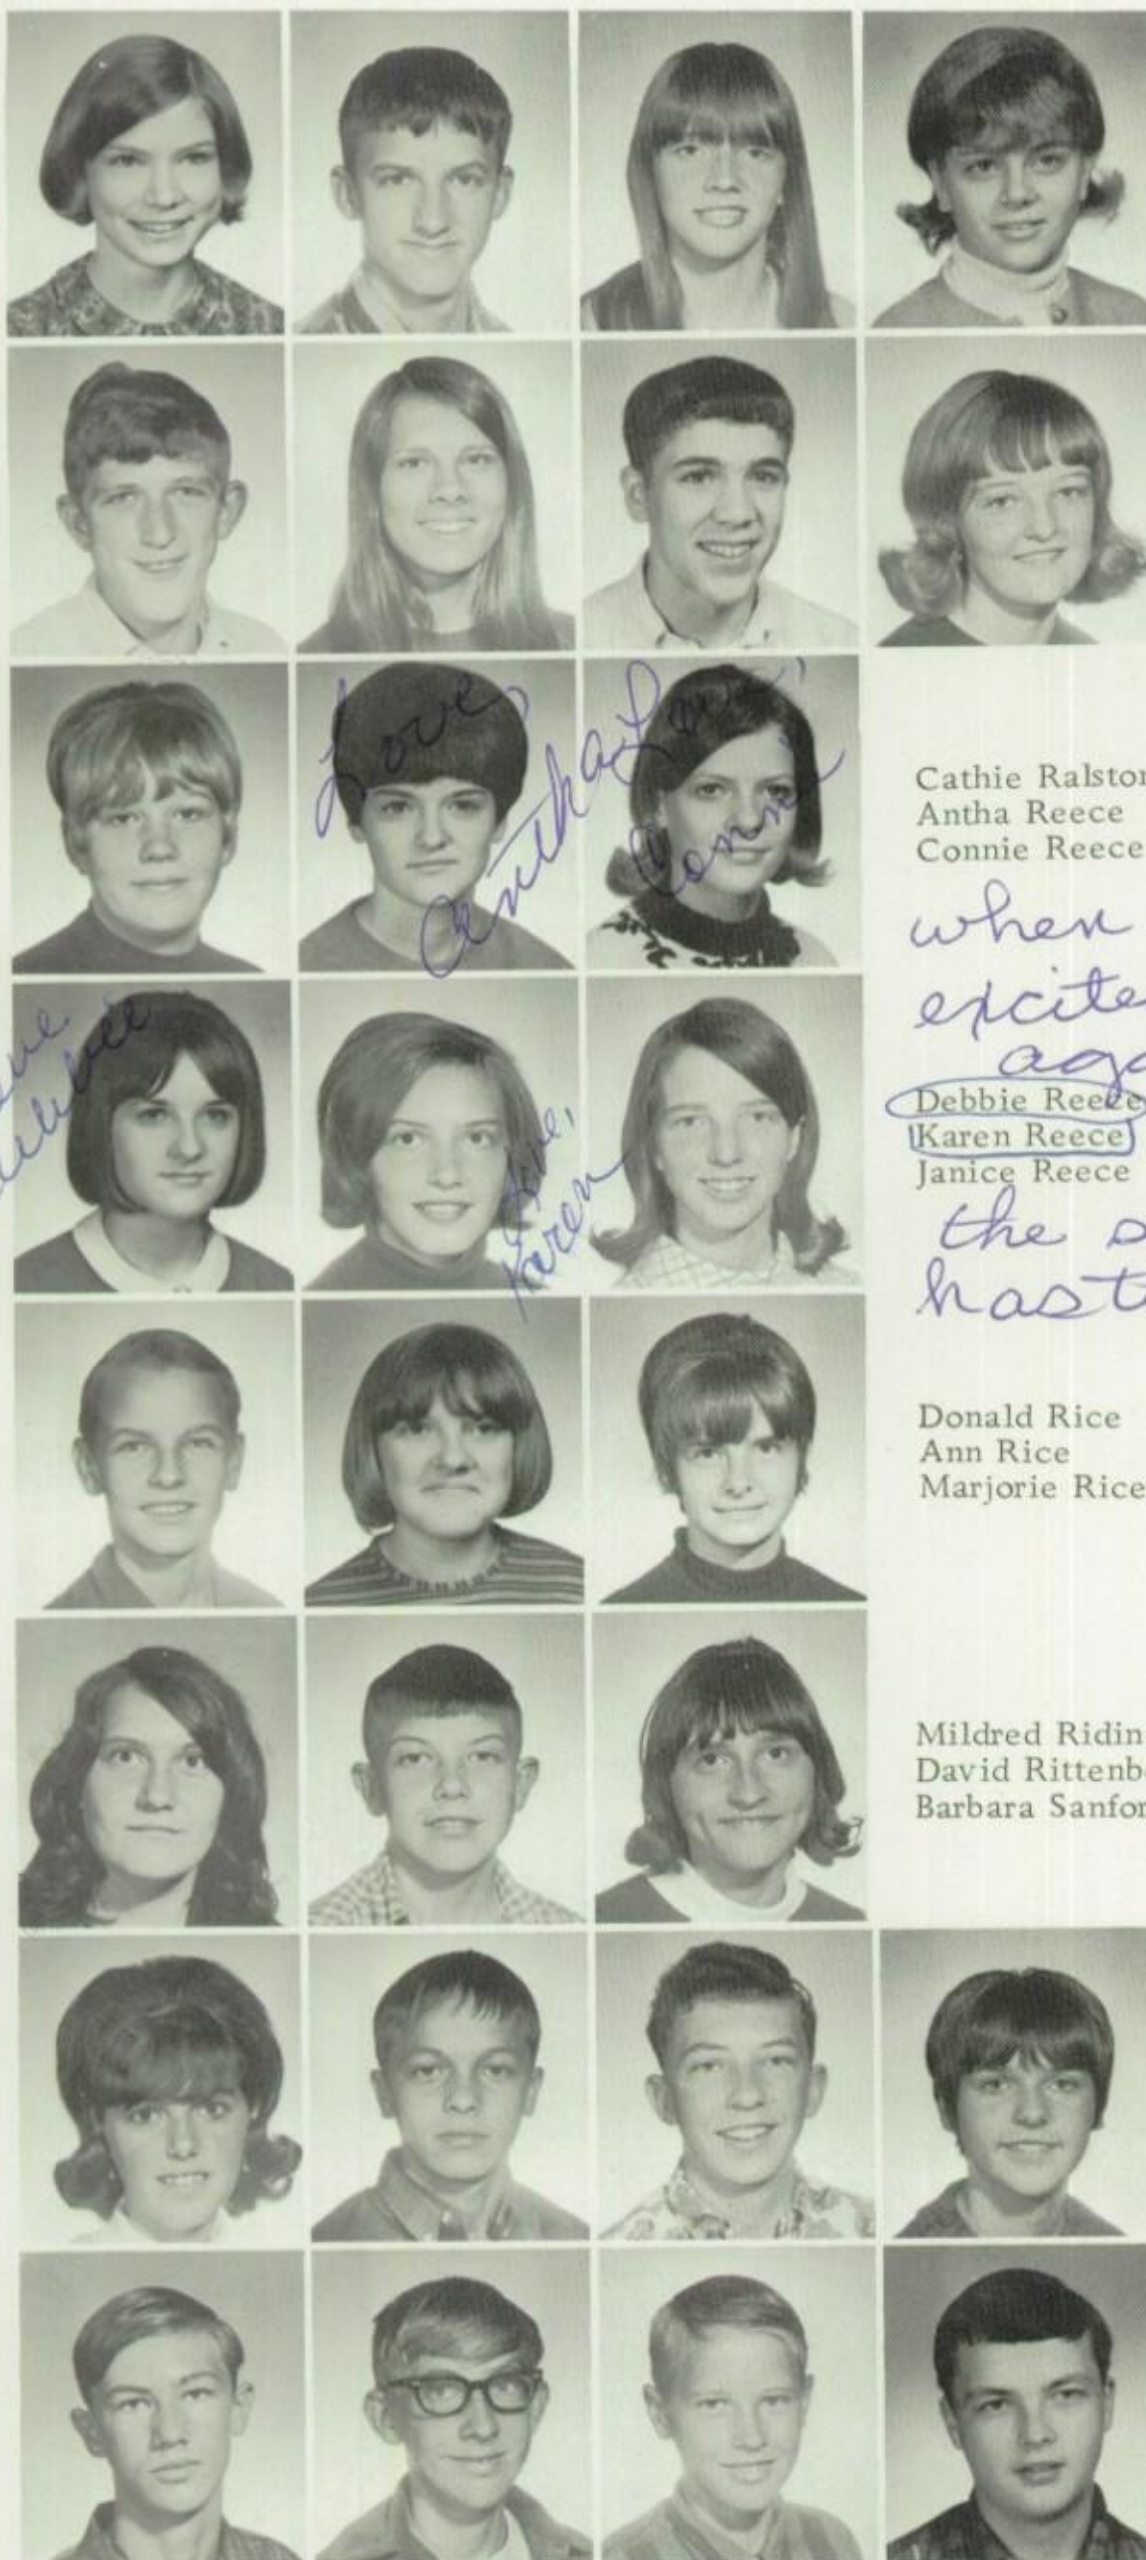 Love,
Antha
Love,
Connie
Cathie Ralston
Antha Reece
Connie Reece
when
excite
aga
Love
Debbie
Debbie Reece
Karen Reece
Janice Reece
Love,
Karen
the s
hast
Donald Rice
Ann Rice
Marjorie Rice
Mildred Ridin
David Rittenb
Barbara Sanfor